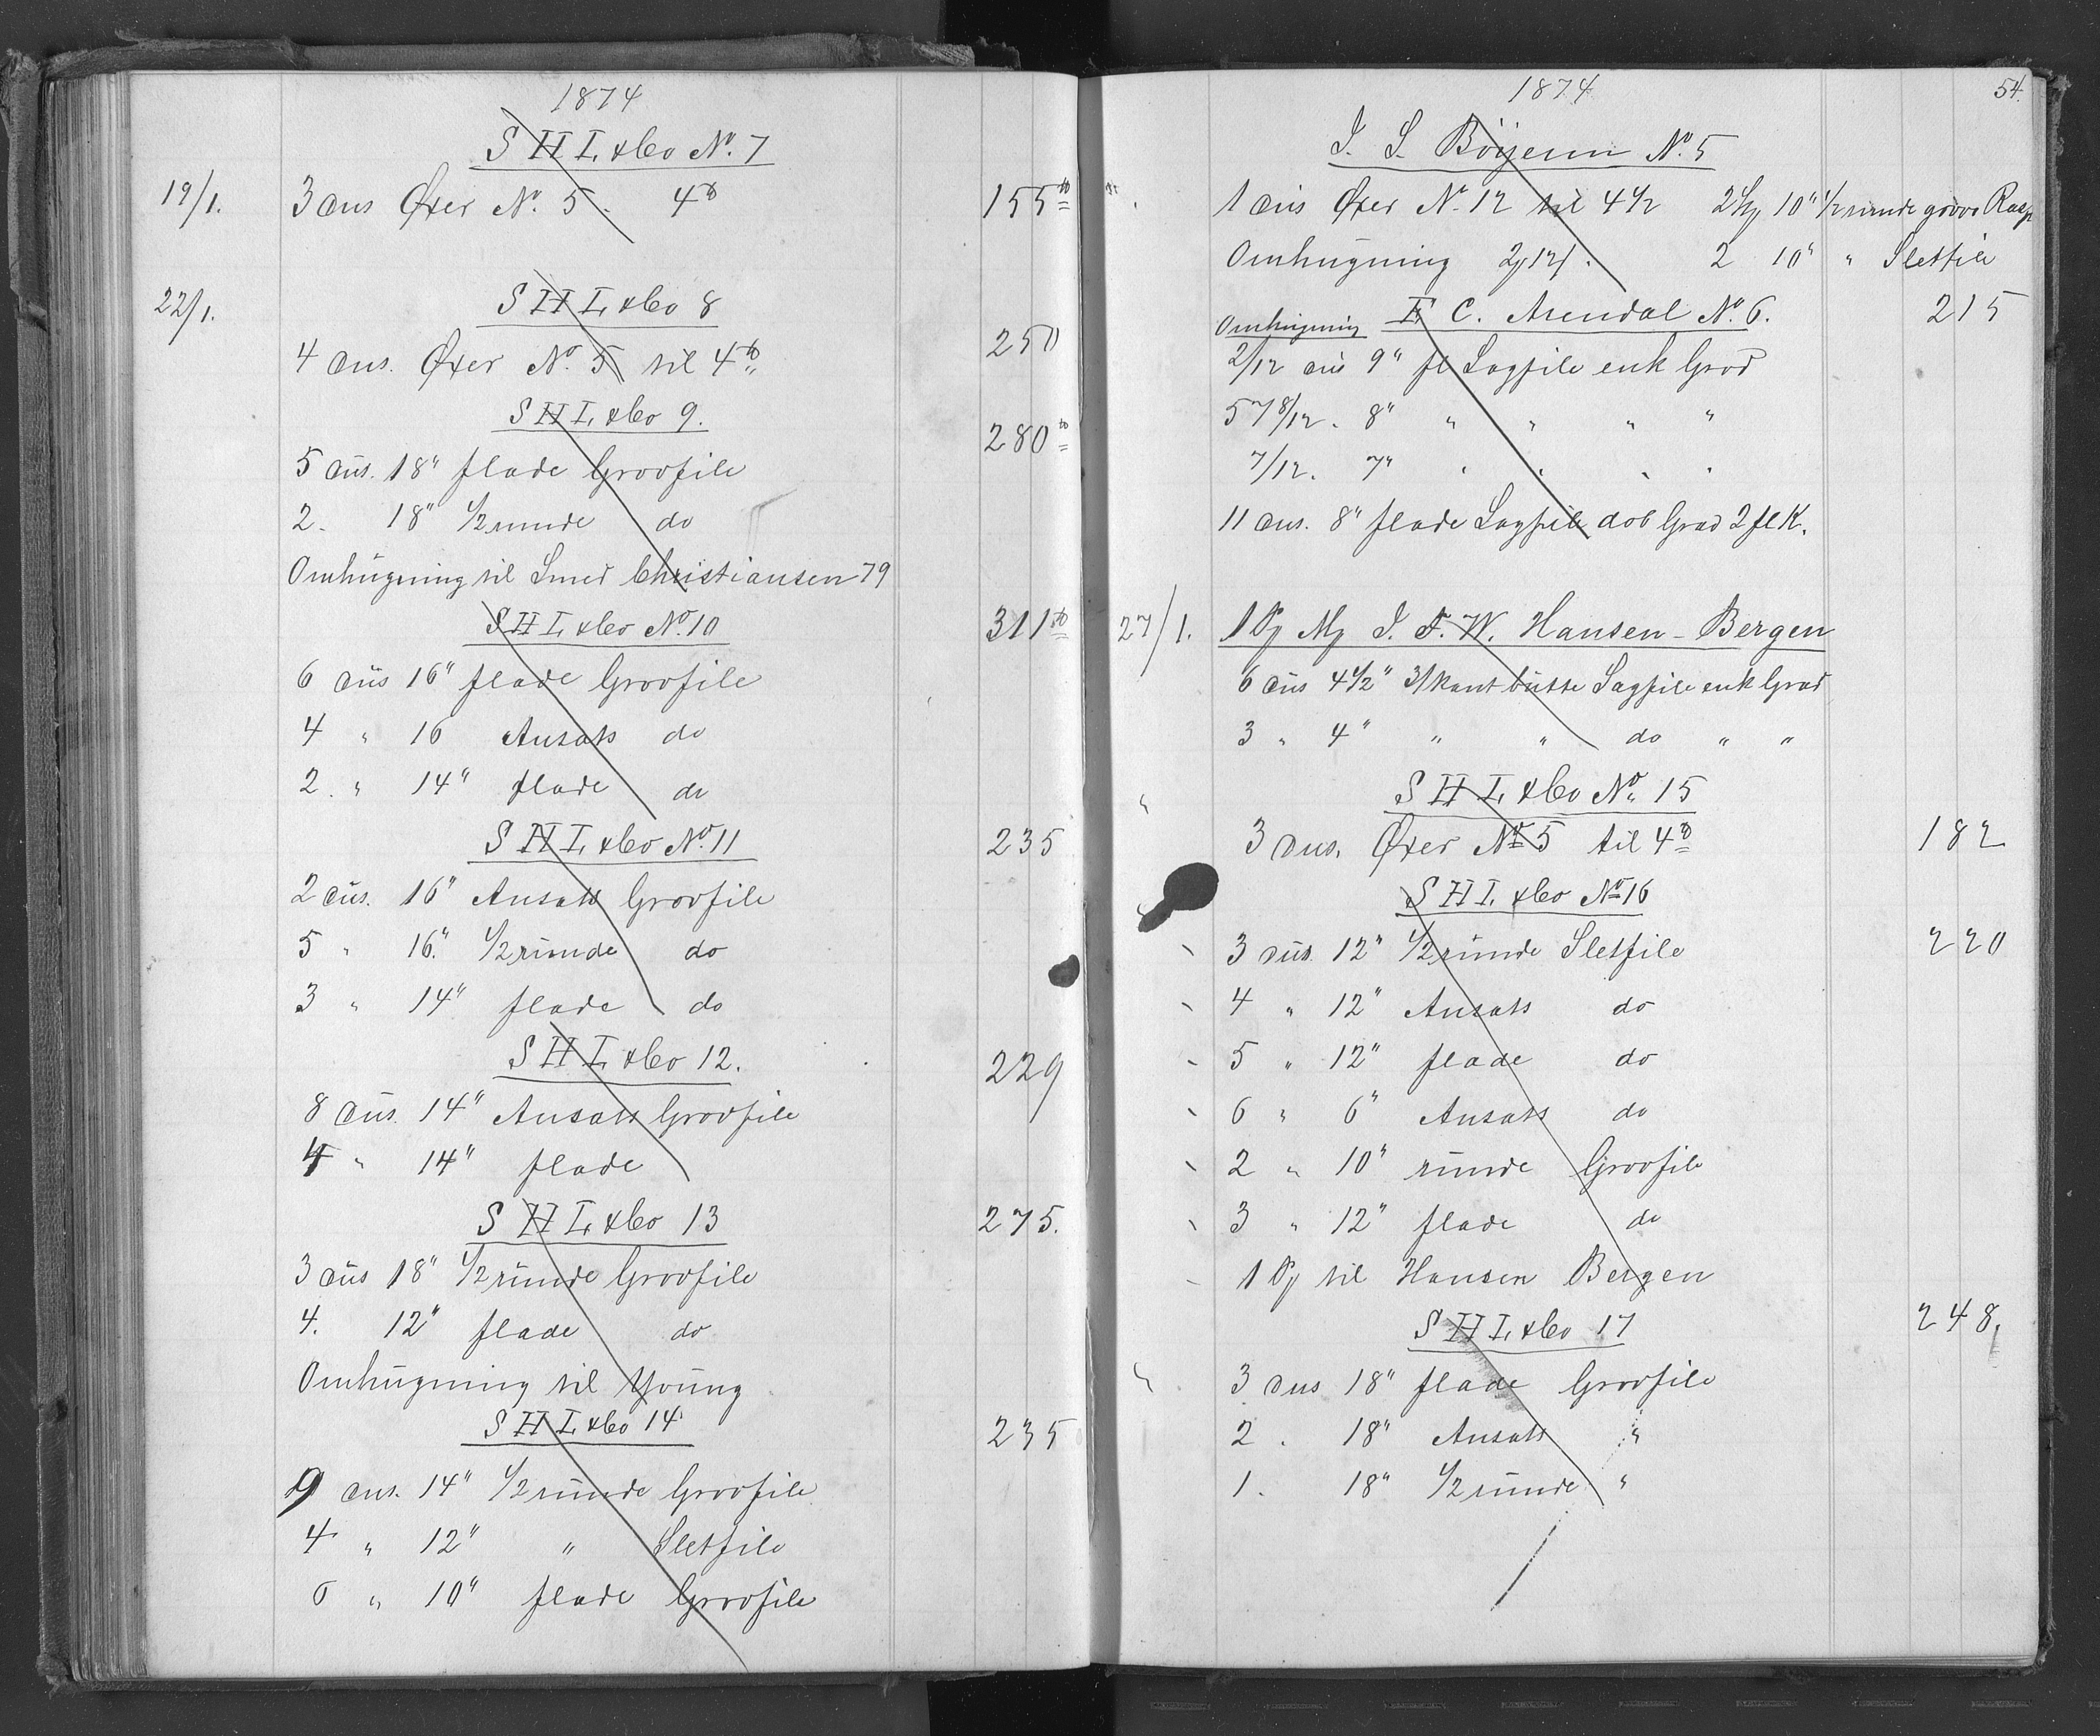 1874
S H L & Co No. 7
19/1. 3 dus Øxer No. 5. 4 tb 155 tb
22/1. S H L & Co 8
4 dus. Øxer No. 5 til 4 tb 250
S H L & Co 9. 280 tb
5 dus. 18" flade Groofile
2. 18" 1/2 runde do
Omhugning til Smed Christiansen 79
S H L & Co No. 10 311 tb
6 dus 16" flade Groofile
4 " 16 Ansats do
2. " 14" flade do
S H L & Co No. 11 235
2 dus. 16" Ansats Groofile
5 " 16." 1/2 runde do
3 " 14" flade do
S H L & Co 12. 229
8 dus. 14" Ansats Groofile
4 " 14" flade
S H L & Co 13 275.
3 dus 18" 1/2 runde Groofile
4. 12" flade do
Omhugning til Young
S H L & Co 14 235
9 dus. 14" 1/2 runde Groofile
4 " 12" " Sletfile
6 " 10" flade Groofile
1874 54.
No. 5
1 dus Øxer No. 12 til 4 1/2 10" 1/2 runde grove Rasp
Omhugning 2 10" " Sletfile
C. Arendal No. 6. 215
Omhugning
2/12 dus 9" fl Sagfile enk Grad
5 7 8/12. 8" " " " "
7/12. 7" " " " "
11 dus. 8" flade Sagfile dob Grad 2 fl K.
27/1. 1 Pk Mk J. F. W. Hansen - Bergen
6 dus 4 1/2" 3/kant butte Sagfile enk Grad
3 " 4" " " do " "
S H L & Co No. 15
3 dus. Øxer No 5 til 4 tb 182
S H L & Co No 16
3 dus. 12" 1/2 runde Sletfile 220
4 " 12" Ansats do
5 " 12" flade do
6 " 6" Ansats do
2 " 10" runde Groofile
3 " 12" flade do
1 Pk til Hansen Bergen
S H L & Co 17 248.
3 dus 18" flade Groofile
2 . 18" Ansats "
1. 18" 1/2 runde "